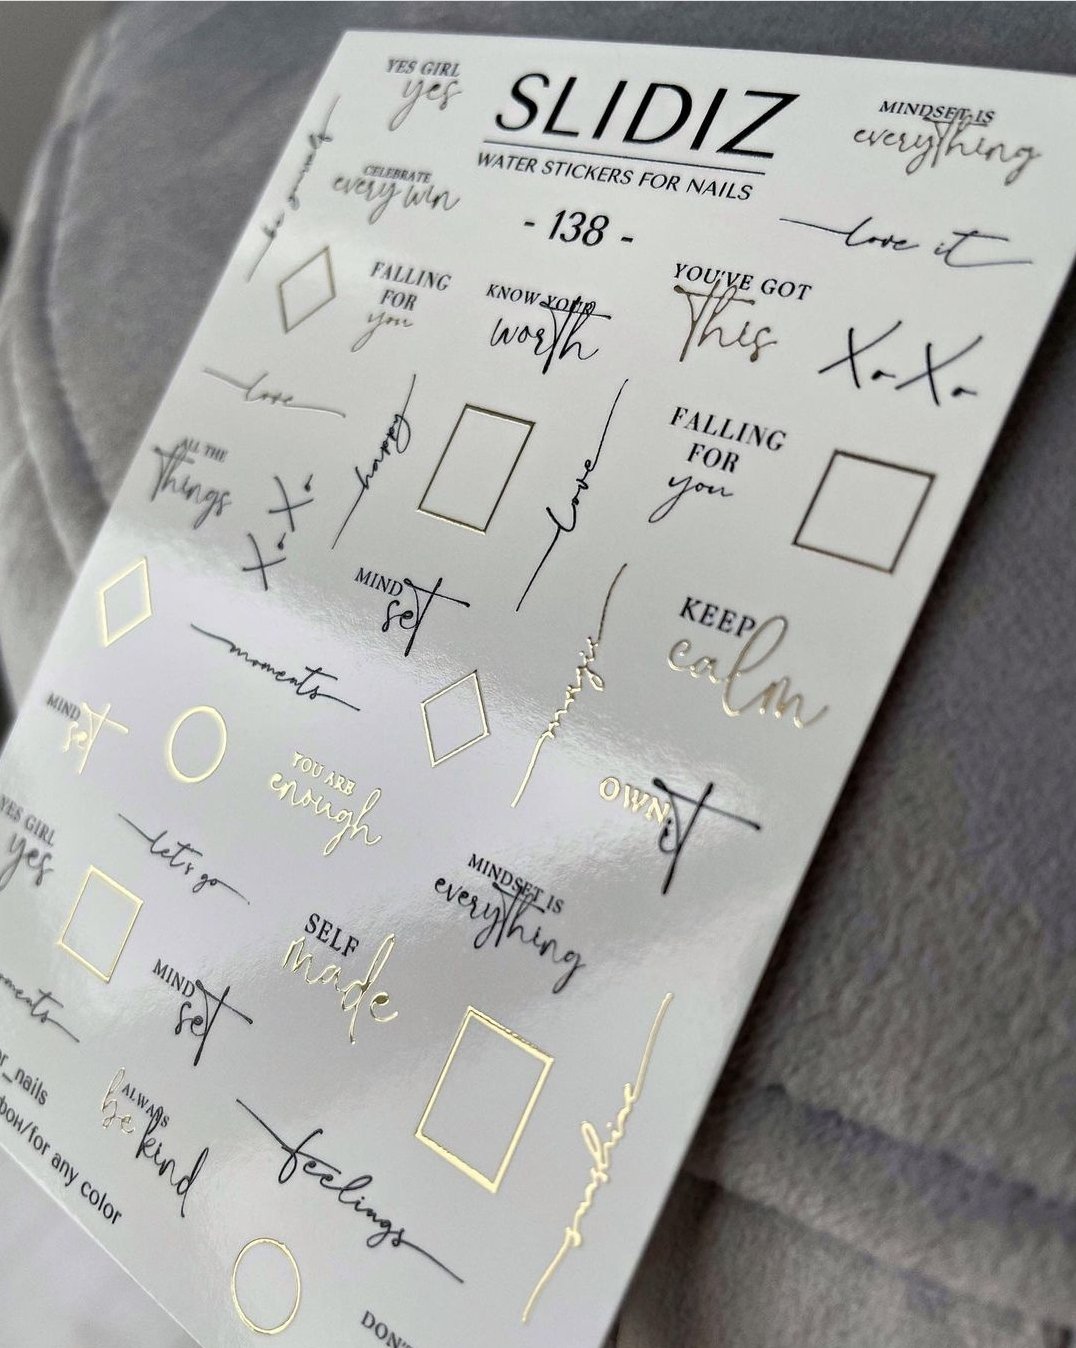 YES GIRL
yes
SLIDIZ
WATER STICKERS FOR NAILS
- 138 -
MINDSET IS
everything
be yourself
CELEBRATE
every win
love it
FALLING
FOR
you
KNOW YOUR
worth
YOU'VE GOT
This
XoXo
love
happy
love
FALLING
FOR
you
ALL THE
Things
XoXo
MIND
set
KEEP
calm
moments
magic
MIND
set
YOU ARE
enough
OWN
it
YES GIRL
yes
let's go
MINDSET IS
everything
SELF
made
MIND
set
sunshine
_nails
фон/for any color
ALWAYS
be kind
feelings